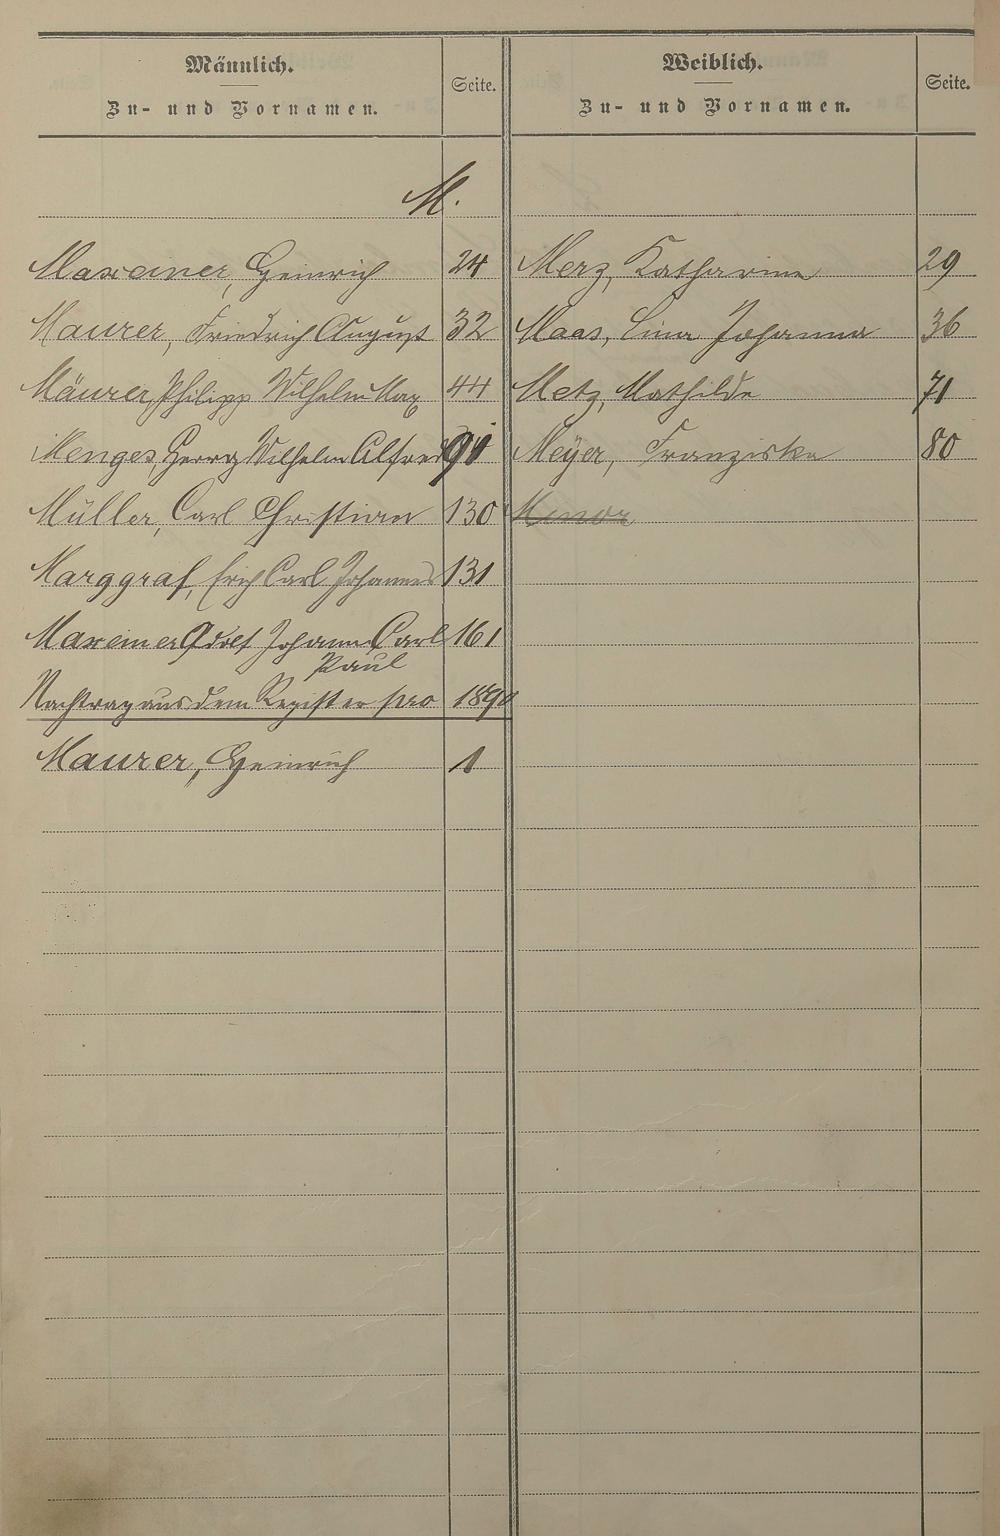 Männlich.
Zu- und Vornamen.
Seite.
Weiblich.
Zu- und Vornamen.
Seite.
M.
Maxeiner, Heinrich 24
Maurer, Friedrich August 32
Mäurer, Philipp Wilhelm Max 44
Menges, Georg Wilhelm Alfred 91
Müller, Carl Christian 130
Marggraf, Erich Carl Johannes 131
Maxeiner Adolf Johann Carl 161
Paul
Nachtrag aus dem Register pro 1890
Maurer, Heinrich 1
Merz, Katharina 29
Maas, Lina Johanna 36
Metz, Mathilde 71
Meÿer, Franziska 80